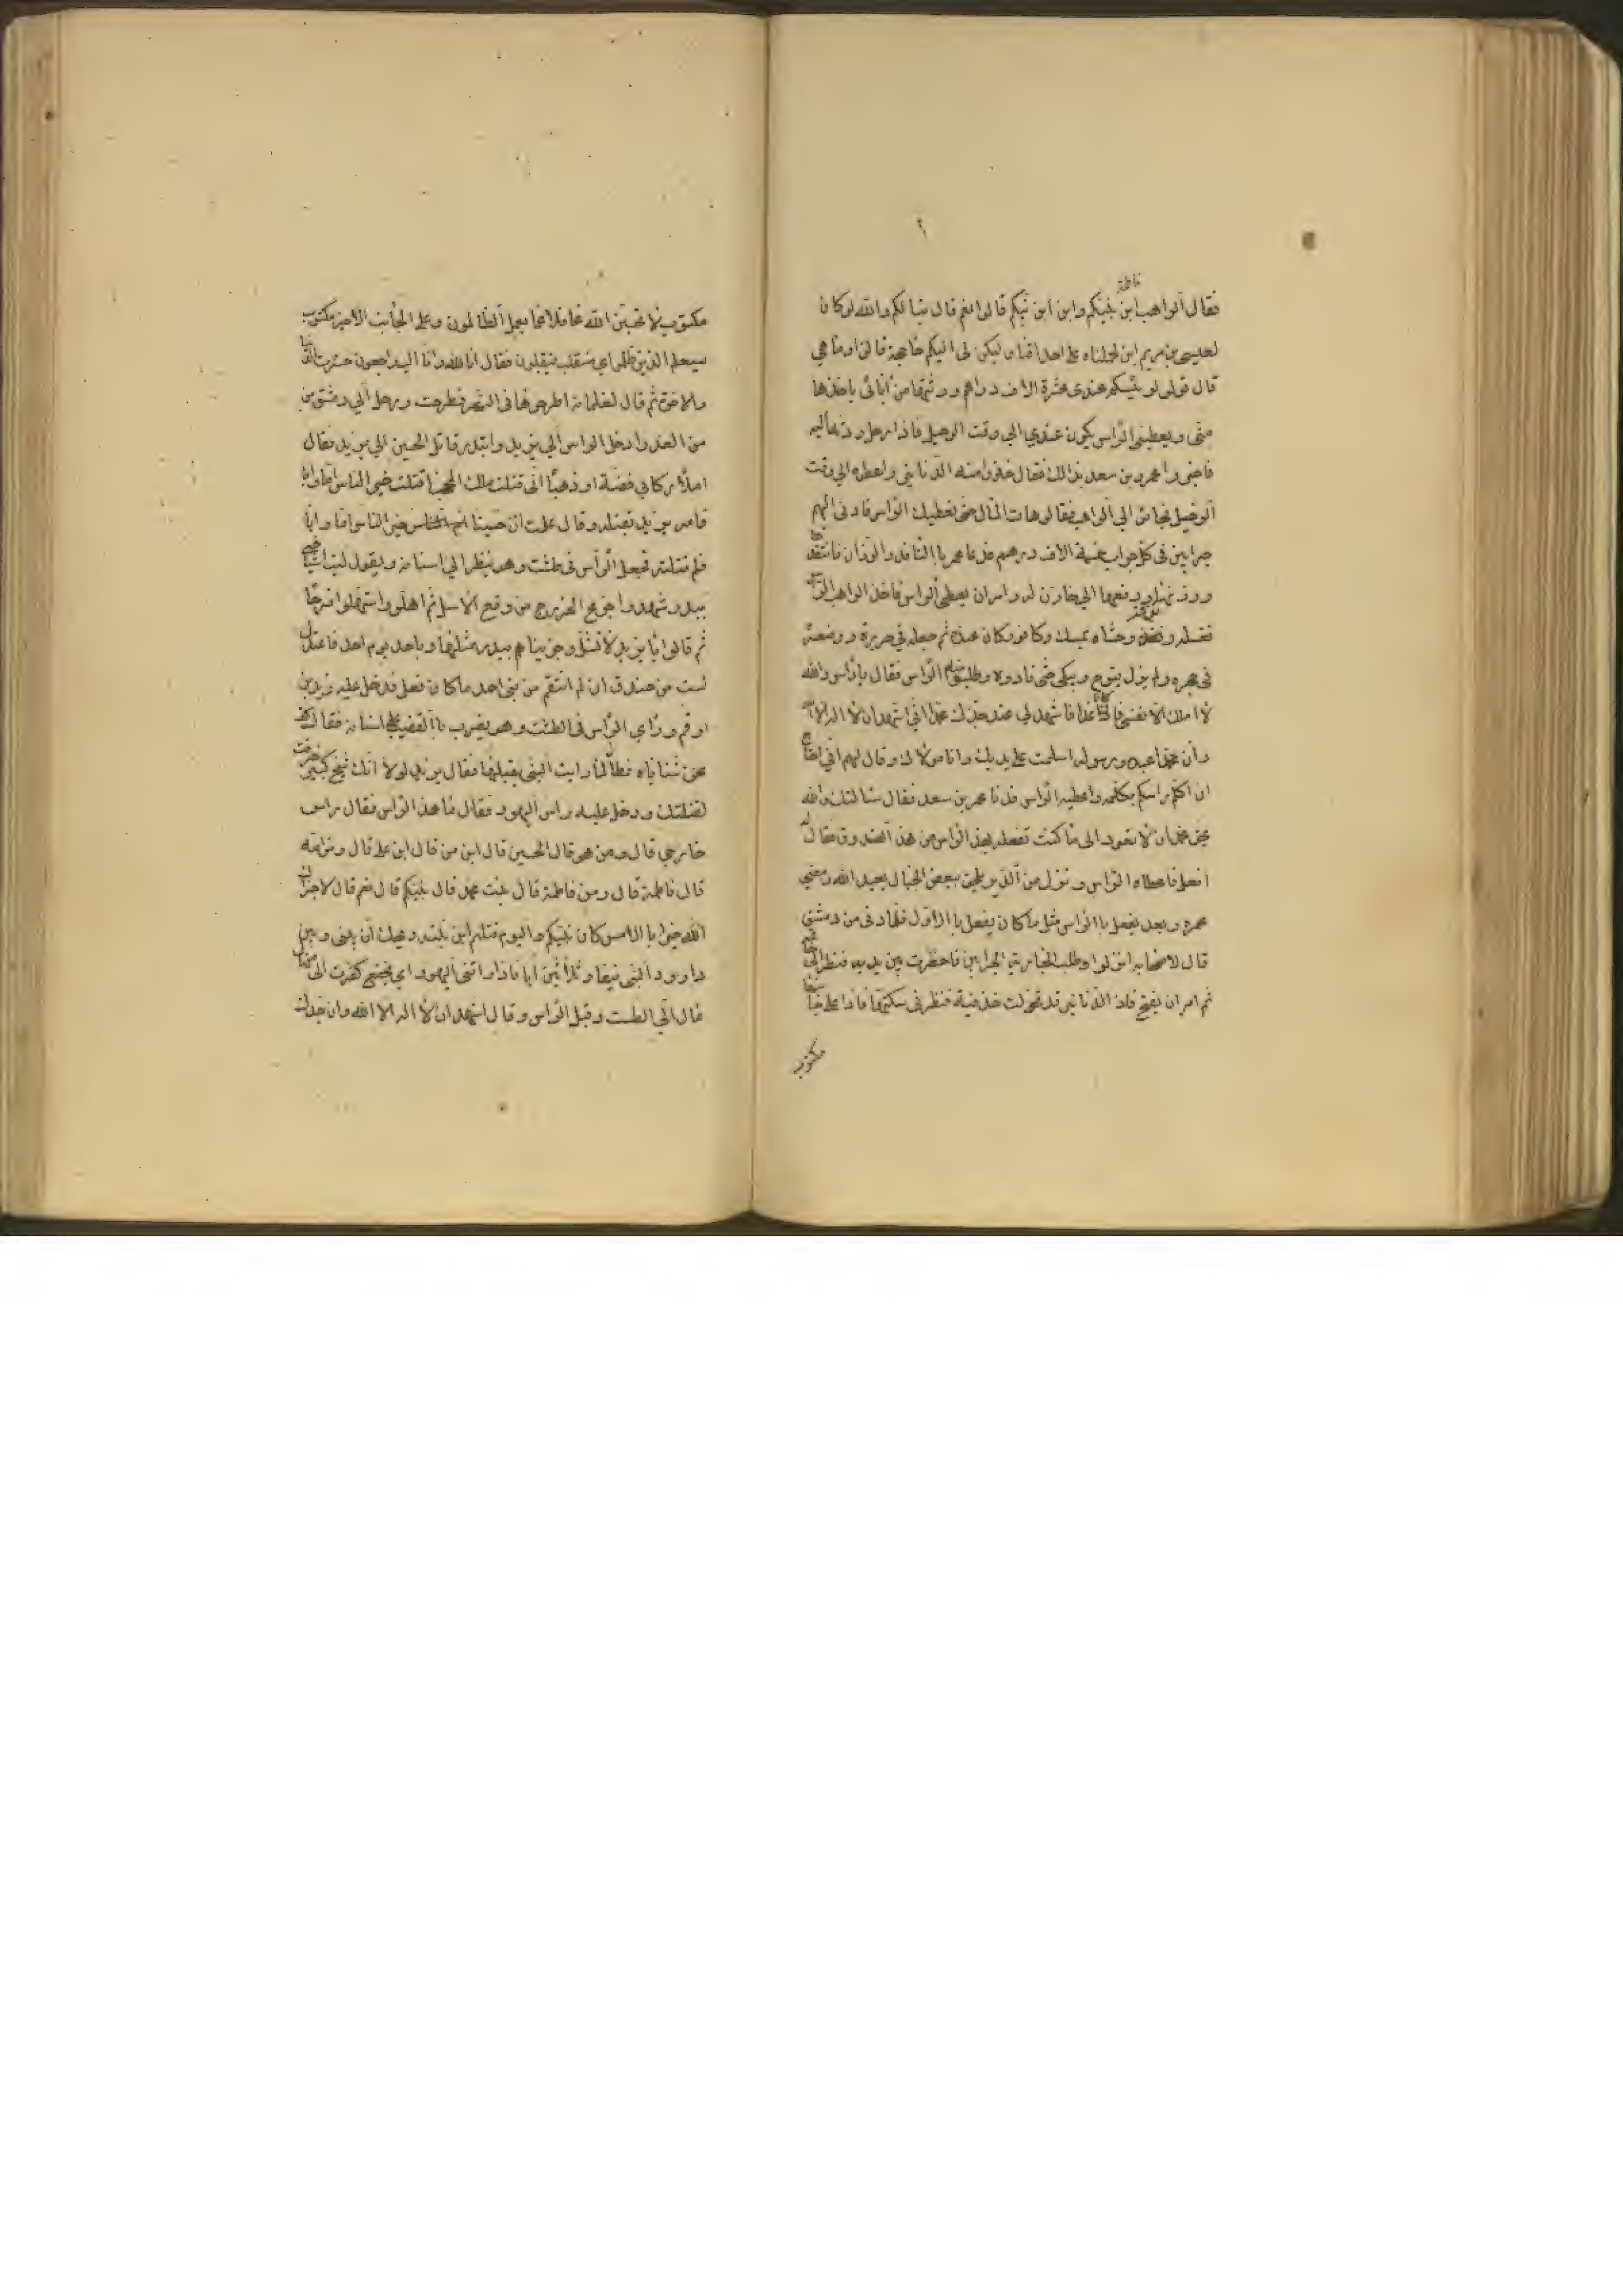 فاطمة
فقال الراهب ابن بنت نبيكم وابن ابن نبيكم قالوا نعم قال تبا لكم والله لو كان
لعيسى بن مريم ابن لحملناه على احداقنا ولكن لى اليكم حاجة قالوا وما هي
قال قولوا لرئيسكم عندى عشرة الاف دراهم ورثتها من آبائى ياخذها
منى ويعطينى الراس يكون عندي الى وقت الرحيل فاذا رحل رددتها اليه
فاخبروا عمرو بن سعد بذالك فقال خذوا منه الدنانير واعطوه الى وقت
الرحيل فجاؤ الى الراهب فقالوا هات المال حتى نعطيك الراس فادنى اليهم
جرابين فى كل جراب خمسة الاف درهم فدعا عمر باالناقد والوزان فانتقدها
ووزنها ودفعها الى خازن له وامر ان يعطى الراس فاخذ الراهب الراس
فغسله ونظفه وحشاه بمسك وكافور كان عنده ثم جعله في حريرة ووضعه
فى حجره ولم يزل ينوح ويبكى حتى نادوه وطلبوا منه الراس فقال يا راس والله
لا املك الا نفسى فاذا كان غدا فاشهد لي عند جدك محمد اني اشهد ان لا اله الا الله
وان محمدا عبده ورسوله اسلمت على يديك وانا مولاك وقال لهم انى احتاج
ان اكلم راسكم بكلمة واعطيه الراس فدنا عمر بن سعد فقال سالتك والله
بحق محمد ان لا تعود الى ما كنت تفعله بهذا الراس من هذا الصندوق فقال له
افعل فاعطاه الراس ونزل من الدير يلحق ببعض الجبال يعبد الله ومضى
عمرو بن سعد يفعل باالراس مثل ما كان يفعل باالاول فلما دنى من دمشق
قال لاصحابه انزلوا وطلب الجرابين فاحضرت بين يديه فنظر الى خاتمه
ثم امر ان يفتح فاذا الدنانير قد تحولت خذفية فنظر فى سكتها فاذا على جانبها
مكتوب
مكتوب لا تحسبن الله غافلا عما يعمل الظالمون وعلى الجانب الاخر مكتوب
سيعلم الذين ظلموا اي منقلب ينقلبون فقال انا لله وانا اليه راجعون خسرت الدنيا
والاخرة ثم قال لغلمانه اطرحوها فى النهر فطرحت ورحل الي دمشق من
من الغد وادخل الراس الي يزيد وابتدر قاتل الحسين الي يزيد فقال
املأ ركابي فضة او ذهبا انى قتلت ملك المحجبا قتلت خير الناس اما وابا
فامر يزيد بقتله وقال علمت ان حسينا خير الناس اما وابا
فلم قتلته فجعل الراس فى طشت وهو ينظر الي اسنانه ويقول ليت اشياخي
ببدر شهدوا جزع الخزرج من وقع الاسل ثم اهلوا واستهلوا فرحا
ثم قالوا يا يزيد لا تشل وجزيناهم ببدر مثلها وباحد يوم احد فاعتدل
لست من خندق ان لم انتقم من بني احمد ما كان فعل فدخل عليه زيد بن
ارقم وراي الراس فى الطشت وهو يضرب باالقضيب على اسنانه فقال كف
عن ثناياه فطالما رايت النبى يقبلها فقال يزيد لولا انك شيخ كبير خرفت
لقتلتك ودخل عليه راس اليهود فقال ما هذا الراس فقال راس
خارجي قال ومن هو قال الحسين قال ابن من قال ابن على قال ومن امه
قال فاطمة قال ومن فاطمة قال بنت محمد قال نبيكم قال نعم قال لا جزاكم
الله خيرا باالامس كان نبيكم واليوم قتلتم ابن بنته ويحك ان بينى وبين
داوود النبى نيفا وثلاثين ابا فاذا راتنى اليهود
مال الى الطست وقبل الراس وقال اشهد ان لا اله الا الله وان جدك